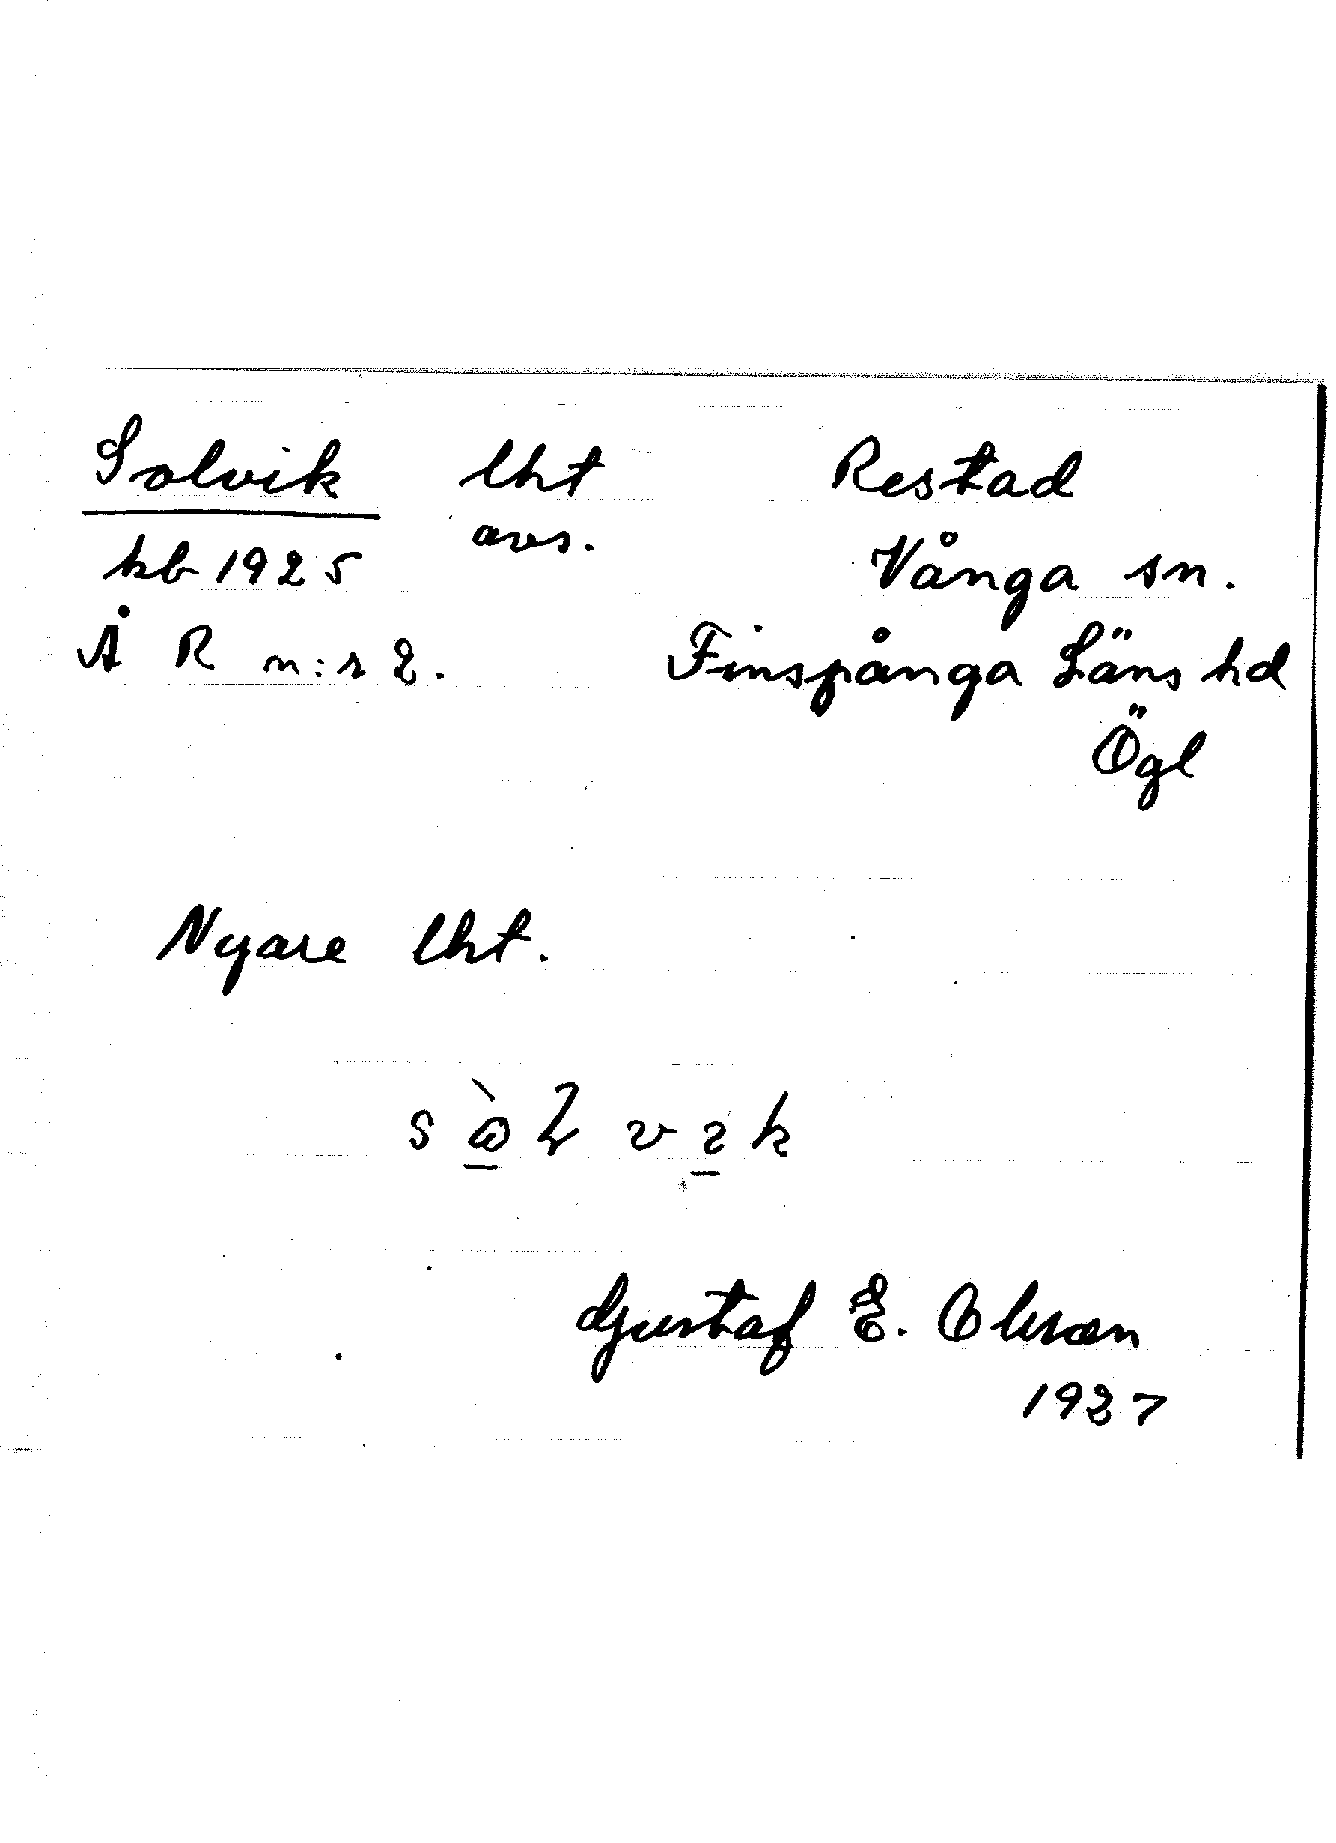 Solvik lht Restad
avs.
kb 1925 Vånga sn.
Å R n:r 2. Finspånga Läns hd
Ögl
Nyare lht.
Gustaf E. Olsson
1927